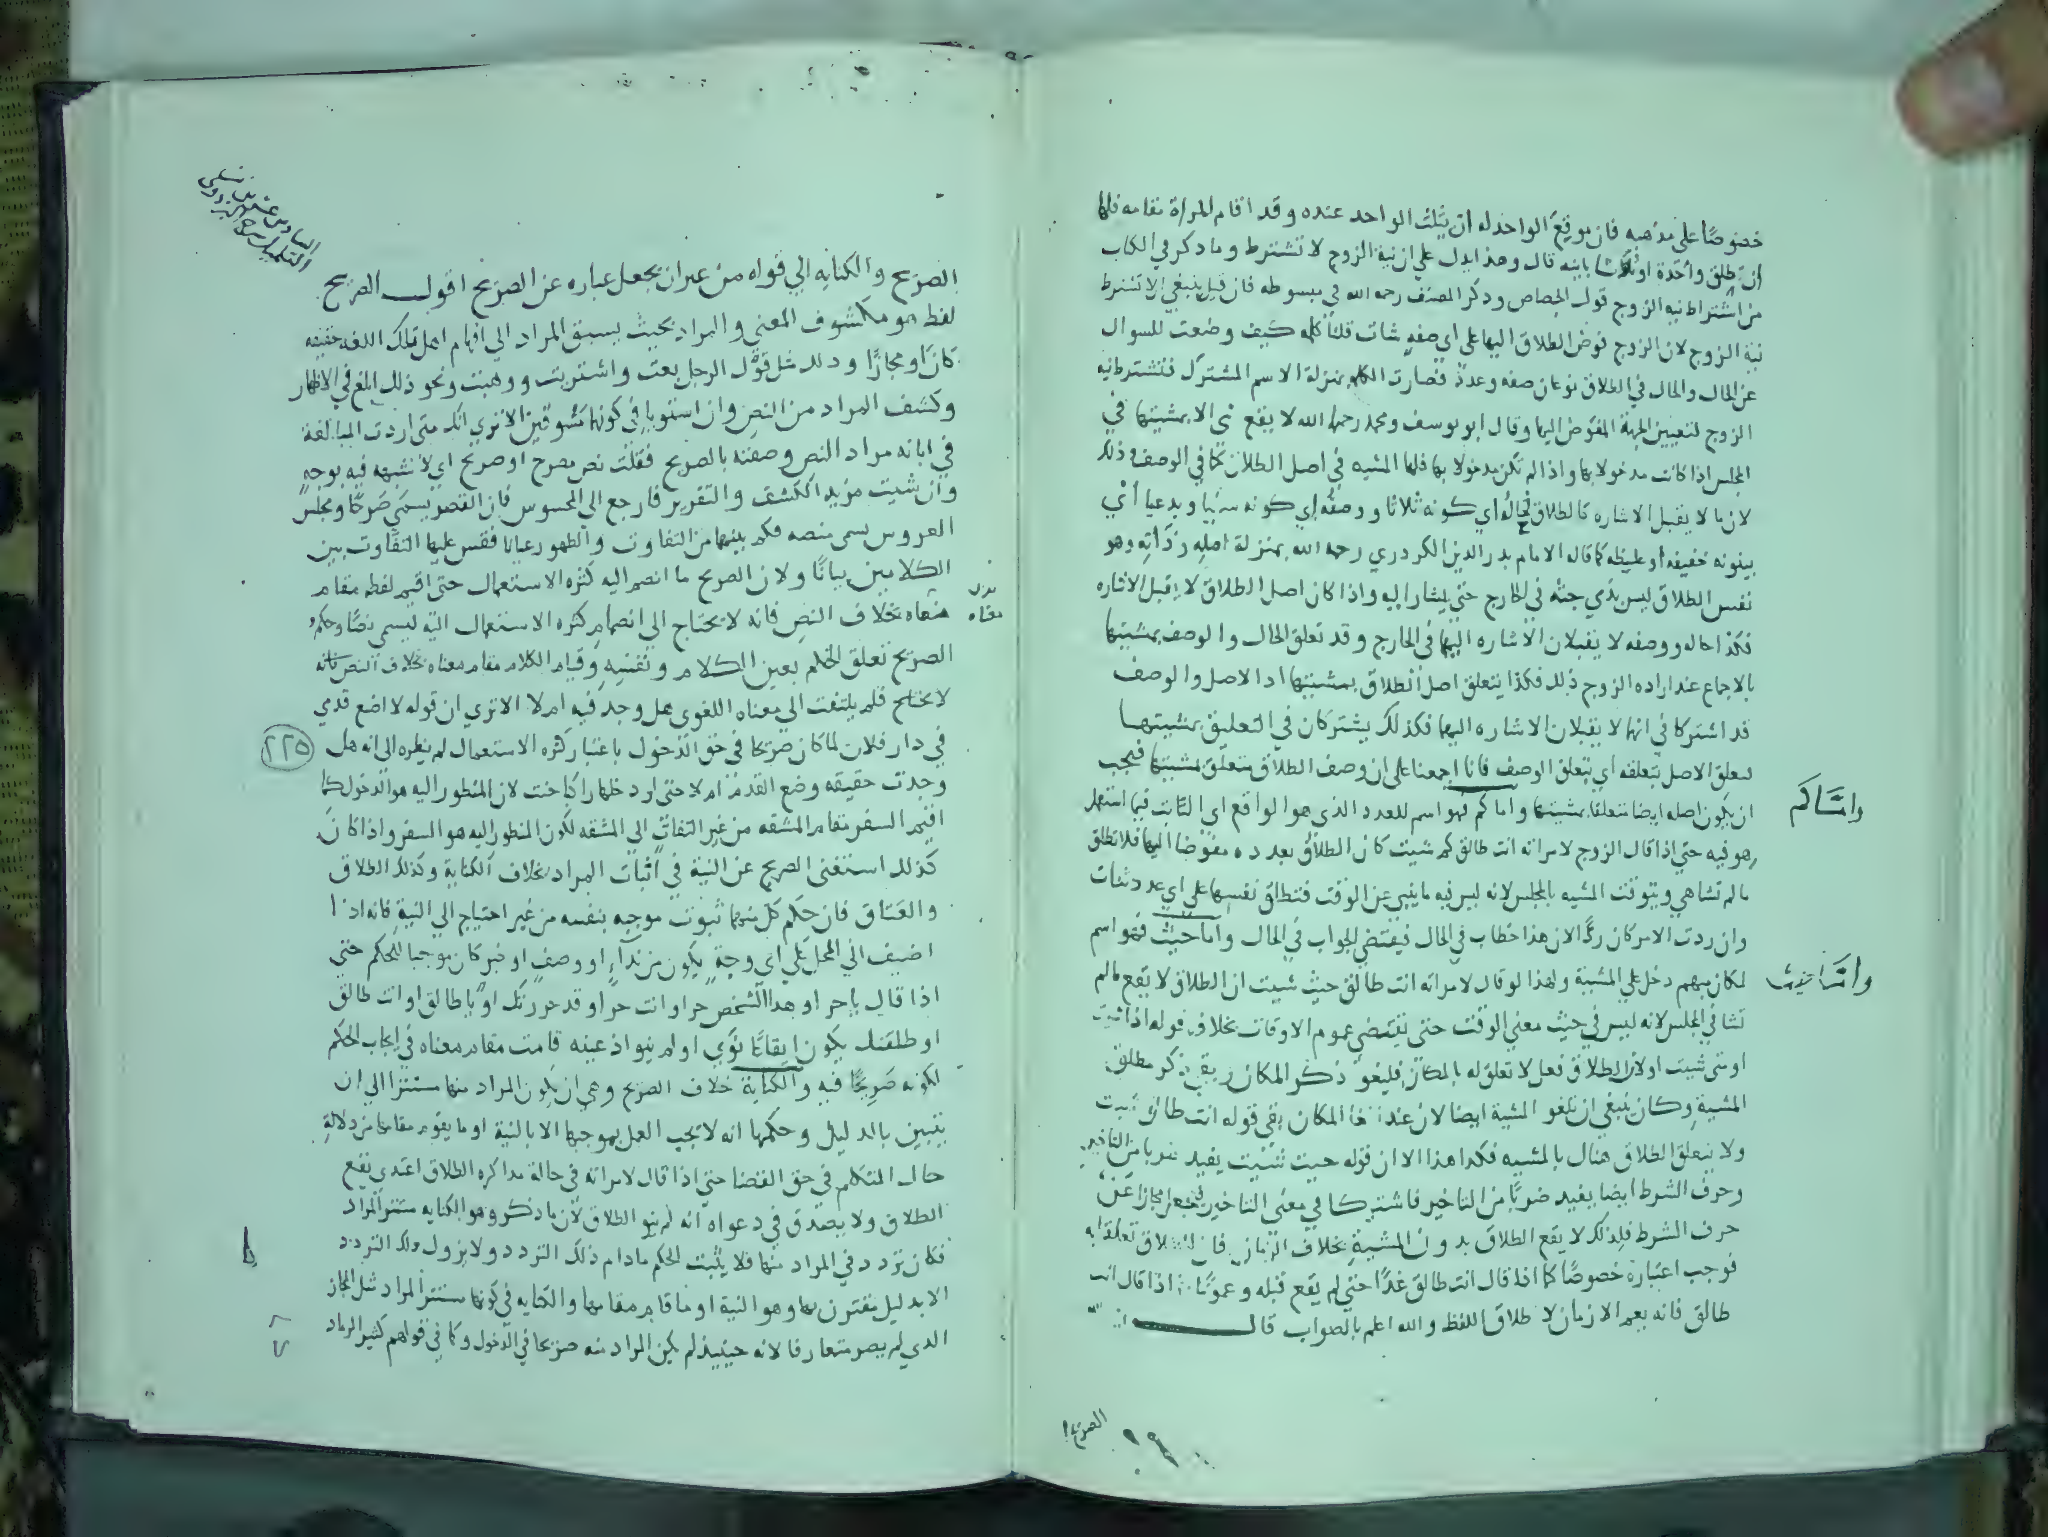 خصوصا على مذهبه فان موقع الواحد له ان يثلث الواحد عنده وقد اقام المراة مقامه فلها
ان تطلق واحدة او ثلاثا باينه قال وهذا يدل على ان نية الزوج لا تشترط وما ذكر في الكتاب
من اشتراط نيه الزوج قول الجصاص وذكر المصنف رحمه الله في مبسوطه فان قيل ينبغي الا تشترط
نية الزوج لان الزوج فوض الطلاق اليها على اي صفه شات قلنا كلمه كيف وضعت للسوال
عن الحال والحال في الطلاق نوعان صفه وعدد فصارت الكلمه بمنزلة الاسم المشترك فتشترط نيه
الزوج لتعيين الجهة المفوض اليها وقال ابو يوسف ومحمد رحمهما الله لا يقع شي الا بمشيتها في
المجلس اذا كانت مدخولا بها واذا لم تكن مدخولا بها فلها المشيه في اصل الطلاق كما في الوصف وذلك
لان ما لا يقبل الاشاره كالطلاق فحاله اي كونه ثلاثا ووصفه اي كونه سنيا وبدعيا اي
بينونه خفيفه او غليظه كما قاله الامام بدر الدين الكردري رحمه الله بمنزلة اصله وذاته وهو
نفس الطلاق ليس بذي جثه في الخارج حتى يشار اليه واذا كان اصل الطلاق لا يقبل الاشاره
فكذا حاله ووصفه لا يقبلان الاشاره اليهما في الخارج وقد تعلق الحال والوصف بمشيتها
بالاجماع عند اراده الزوج ذلك فكذا يتعلق اصل الطلاق بمشيتها اذ الاصل والوصف
قد اشتركا في انهما لا يقبلان الاشاره اليهما فكذلك يشتركان في التعليق بمشيتها
لتعلق الاصل بتعلقه اي بتعلق الوصف فانا اجمعنا على ان وصف الطلاق متعلق بمشيتها فيجب
ان يكون اصله ايضا متعلقا بمشيتها واما كم فهو اسم للعدد الذي هو الواقع اي الثابت فيما استعمل
هو فيه حتى اذا قال الزوج لامراته انت طالق كم شيت كان الطلاق بعدده مفوضا اليها فلا تطلق
ما لم تشا هي ويتوقت المشيه بالمجلس لانه ليس فيه ما ينبي عن الوقت فتطلق نفسها على اي عدد شات
وان ردت الامر كان ردا لان هذا خطاب في الحال فيقتضي الجواب في الحال واما حيث فهو اسم
لمكان مبهم دخل على المشية ولهذا لو قال لامراته انت طالق حيث شيت ان الطلاق لا يقع ما لم
تشا في المجلس لانه ليس في حيث معنى الوقت حتى يقتضي عموم الاوقات بخلاف قوله اذا شيت
او متى شيت اولان الطلاق فعل لا تعلق له بالمكان فليغو ذكر المكان ويبقى ذكر مطلق
المشية وكان ينبغي ان تلغو المشية ايضا لان عند المكان بقي قوله انت طالق شيت
ولا يتعلق الطلاق هناك بالمشيه فكذا هذا الا ان قوله حيث شيت يفيد ضربا من التاخير
وحرف الشرط ايضا يفيد ضربا من التاخير فاشتركا في معنى التاخير فيجعل مجازا عن
حرف الشرط فلذلك لا يقع الطلاق بدون المشية بخلاف الزمان فان للطلاق تعلقا به
فوجب اعتباره خصوصا كما اذا قال انت طالق غدا حتى لم يقع قبله وعموما اذا قال انت
طالق فانه يعم الازمان لاطلاق اللفظ والله اعلم بالصواب قال
واما كم
واما حيث
الصريح
السادس عشر من نسختي
التكميل شرح البزدوي
الصريح والكنايه الي قوله من غير ان يجعل عباره عن الصريح اقول الصريح
لفظ هو مكشوف المعنى والمراد بحيث يسبق المراد الى افهام اهل تلك اللغه حقيقه
كان او مجازا وذلك مثل قول الرجل بعت واشتريت ووهبت ونحو ذلك ابلغ في الاظهار
وكشف المراد من النص وان استويا في كونهما مسوقين الا ترى انك متى اردت المبالغة
في ابانه مراد النص وصفته بالصريح فقلت نص مصرح او صريح اي لا شبهه فيه بوجه
وان شيت مزيد الكشف والتقرير فارجع الى المحسوس فان القصر يسمى صرحا ومجلس
العروس يسمى منصه فكم بينهما من التفاوت والظهور عيانا فقس عليها التفاوت بين
الكلامين بيانا ولان الصريح ما انضم اليه كثره الاستعمال حتى اقيم لفظه مقام
معناه بخلاف النص فانه لا يحتاج الى انضمام كثره الاستعمال اليه ليسمى نصا وحكم
الصريح تعلق الحكم بعين الكلام ونفسه وقيام الكلام مقام معناه بخلاف النص فانه
لا يحتاج فلم يلتفت الى معناه اللغوي هل وجد فيه ام لا الا ترى ان قوله لا اضع قدمي
في دار فلان لما كان صريحا في حق الدخول باعتبار كثره الاستعمال لم ينظر الى انه هل
وجدت حقيقه وضع القدم ام لا حتى لو دخلها راكبا حنث لان المنظور اليه هو الدخول كما
اقيم السفر مقام المشقه من غير التفات الى المشقه لكون المنظور اليه هو السفر واذا كان
كذلك استغنى الصريح عن النية في اثبات المراد بخلاف الكناية وكذلك الطلاق
والعتاق فان حكم كل منهما ثبوت موجبه بنفسه من غير احتياج الى النية فانه اذا
اضيف الى المحل على اي وجه يكون من نداء او وصف او خبر كان موجبا للحكم حتى
اذا قال يا حر او هذا الشخص حر او انت حر او قد حررتك او يا طالق او انت طالق
او طلقتك يكون ايقاعا نوى او لم ينو اذ عينه قامت مقام معناه في ايجاب الحكم
لكونه صريحا فيه والكناية خلاف الصريح وهي ان يكون المراد منها مستترا الى ان
يتبين بالدليل وحكمها انه لا يجب العمل بموجبها الا بالنية او ما يقوم مقامها من دلالة
حال التكلم في حق القضا حتى اذا قال لامراته في حالة مذاكره الطلاق اعتدي يقع
الطلاق ولا يصدق في دعواه انه لم ينو الطلاق لان ما ذكر وهو الكنايه مستتر المراد
فكان تردد في المراد منها فلا يثبت الحكم ما دام ذلك التردد ولا يزول ذلك التردد
الا بدليل يقترن بها وهو النية او ما قام مقامها والكنايه في كونها مستتر المراد مثل المجاز
الذي لم يصر متعارفا لانه حينيذ لم يكن المراد منه صريحا في الدخول وكما في قولهم كثير الرماد
معناه
٢٢٥